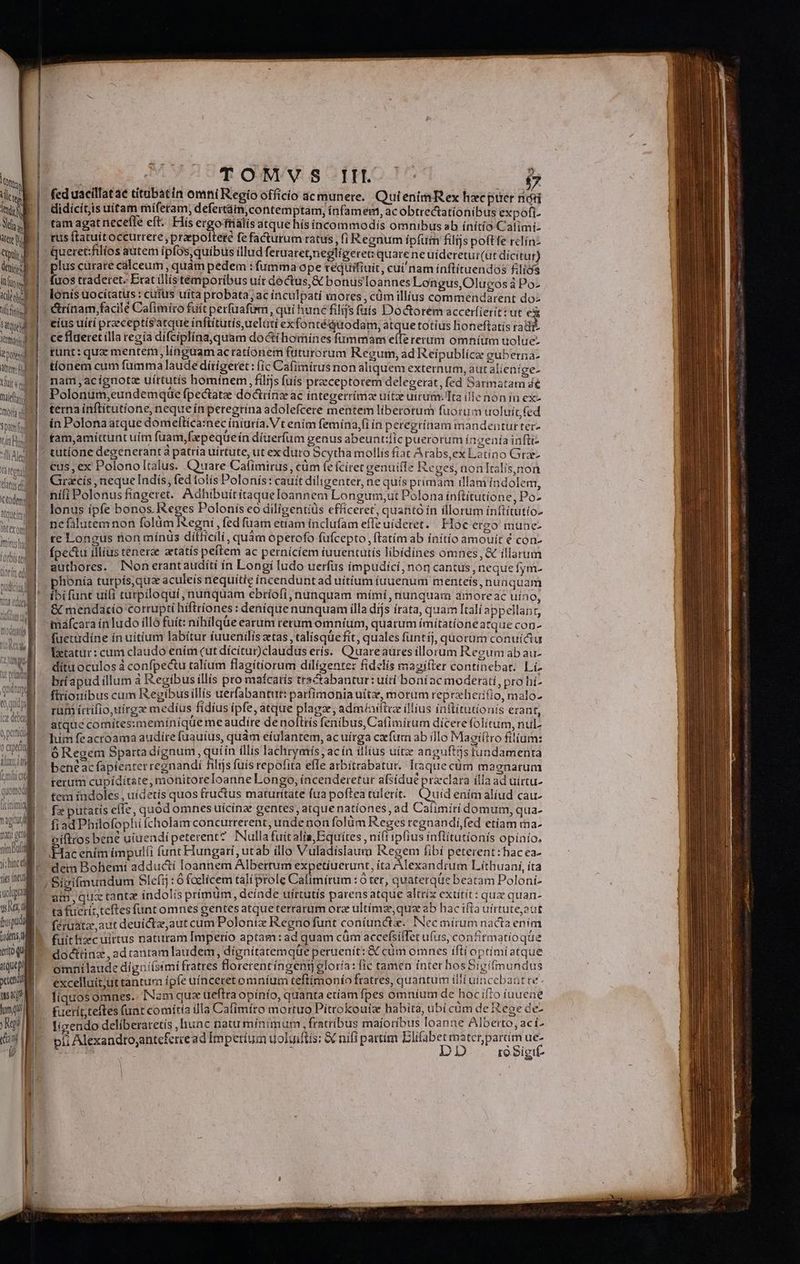 TOMVS III. 37
sed uacillat ac titubat in omni Regio officio ac munere. Qui enim Rex hæc puer nō
didicit, is uitam miseram, desertam, contemptam, infamem, ac obtrectationibus exposi-
tam agat necesse est. His ergo malis atque his incommodis omnibus ab initio Casimi-
rus statuit occurrere, præpostere se facturum ratus, si Regnum ipsum filijs post se relin-
queret: filios autem ipsos, quibus illud seruaret, negligeret: quare ne uideretur (ut dicitur)
plus curare calceum, quàm pedem: summa ope requisiuit, cui nam instituendos filios
suos traderet. Erat illis temporibus uir doctus, & bonus Ioannes Longus, Olugos à Po-
lonis uocitatus: cuius uita probata, ac inculpati mores, cùm illius commendarent do-
ctrinam, facilè Casimiro fuit persuasum, qui hunc filijs suis Doctorem accersierit: ut ex
eius uiri præceptis atque institutis, ueluti ex fonte quodam, atque totius honestatis radi-
ce flueret illa regia disciplina, quam docti homines summam esse rerum omnium uolue-
runt: quæ mentem, linguam ac rationem futurorum Regum, ad Reipublicæ guberna-
tionem cum summa laude dirigeret: sic Casimirus non aliquem externum, aut alienige-
nam, ac ignotæ uirtutis hominem, filijs suis præceptorem delegerat, sed Sarmatam ac
Polonum, eundemque spectatæ doctrinæ ac integerrimæ uitæ uirum. Ita ille non in ex-
terna institutione, neque in peregrina adolescere mentem liberorum suorum uoluit, sed
in Polona atque domestica: nec iniuria. Vt enim femina, si in peregrinam mandentur ter-
ram, amittunt uim suam, sæpeque in diuersum genus abeunt: sic puerorum ingenia insti-
tutione degenerant à patria uirtute, ut ex duro Scytha mollis fiat Arabs, ex Latino Græ-
cus, ex Polono Italus. Quare Casimirus, cùm se sciret genuisse Reges, non Italis, non
Græcis, neque Indis, sed solis Polonis: cauit diligenter, ne quis primam illam indolem,
nisi Polonus fingeret. Adhibuit itaque Ioannem Longum, ut Polona institutione, Po-
lonus ipse bonos Reges Polonis eo diligentiùs efficeret, quantò in illorum institutio-
ne salutem non solùm Regni, sed suam etiam inclusam esse uideret. Hoc ergo mune-
re Longus non minùs difficili, quàm operoso suscepto, statim ab initio amouit è con-
spectu illius teneræ ætatis pestem ac perniciem iuuentutis libidines omnes, & illarum
authores. Non erant auditi in Longi ludo uersus impudici, non cantus, neque sym-
phonia turpis, quæ aculeis nequitiæ incendunt ad uitium iuuenum menteis, nunquam
ibi sunt uisi turpiloqui, nunquam ebriosi, nunquam mimi, nunquam amore ac uino,
& mendacio corrupti histriones: denique nunquam illa dijs irata, quam Itali appellant,
mascara in ludo illo fuit: nihilque earum rerum omnium, quarum imitatione atque con-
suetudine in uitium labitur iuuenilis ætas, talisque fit, quales sunt ij, quorum conuictu
lætatur: cum claudo enim (ut dicitur) claudus eris. Quare aures illorum Regum ab au-
ditu oculos à conspectu talium flagitiorum diligenter fidelis magister continebat. Li-
bri apud illum à Regibus illis pro mascaris tractabantur: uiri boni ac moderati, pro hi-
strionibus cum Regibus illis uersabantur: parsimonia uitæ, morum reprehensio, malo-
rum irrisio, uirgæ medius fidius ipse, atque plagæ, administræ illius institutionis erant,
atque comites: memínique me audire de nostris senibus, Casimirum dicere solitum, nul-
lum se acroama audire suauius, quàm eiulantem, ac uirga cæsum ab illo Magistro filium:
ô Regem Sparta dignum, qui in illis lachrymis, ac in illius uitæ angustijs fundamenta
bene ac sapienter regnandi filijs suis reposita esse arbitrabatur. Itaque cùm magnarum
rerum cupiditate, monitore Ioanne Longo, incenderetur assiduè præclara illa ad uirtu-
tem indoles, uidetis quos fructus maturitate sua postea tulerit. Quid enim aliud cau-
sæ putatis esse, quòd omnes uicinæ gentes, atque nationes, ad Casimiri domum, qua-
si ad Philosophi scholam concurrerent, unde non solùm Reges regnandi, sed etiam ma-
gistros bene uiuendi peterent? Nulla fuit alia, Equites, nisi ipsius institutionis opinio.
Hac enim impulsi sunt Hungari, ut ab illo Vuladislaum Regem sibi peterent: hac ea-
dem Bohemi adducti Ioannem Albertum expetiuerunt, ita Alexandrum Lithuani, ita
Sigismundum Slesij: ô fœlicem tali prole Casimirum: ô ter, quaterque beatam Poloni-
am, quæ tantæ indolis primùm, deinde uirtutis parens atque altrix extitit: quæ quan-
ta fuerit, testes sunt omnes gentes atque terrarum oræ ultimæ, quæ ab hac ista uirtute, aut
seruatæ, aut deuictæ, aut cum Poloniæ Regno sunt coniunctæ. Nec mirum nacta enim
fuit hæc uirtus naturam Imperio aptam: ad quam cùm accessisset usus, confirmatioque
doctrinæ, ad tantam laudem, dignitatemque peruenit: & cùm omnes isti optimi atque
omni laude dignissimi fratres florerent ingenij gloria: sic tamen inter hos Sigismundus
excelluit, ut tantum ipse uinceret omnium testimonio fratres, quantum illi uincebant re-
liquos omnes. Nam quæ uestra opinio, quanta etiam spes omnium de hoc isto iuuene
fuerit, testes sunt comitia illa Casimiro mortuo Pitrokouiæ habita, ubi cùm de Rege de-
ligendo deliberaretis, hunc natu minimum, fratribus maioribus Ioanne Alberto, ac i-
psi Alexandro, anteferre ad Imperium uoluistis: & nisi partim Elisabet mater, partim ue-
DD rò Sigis-